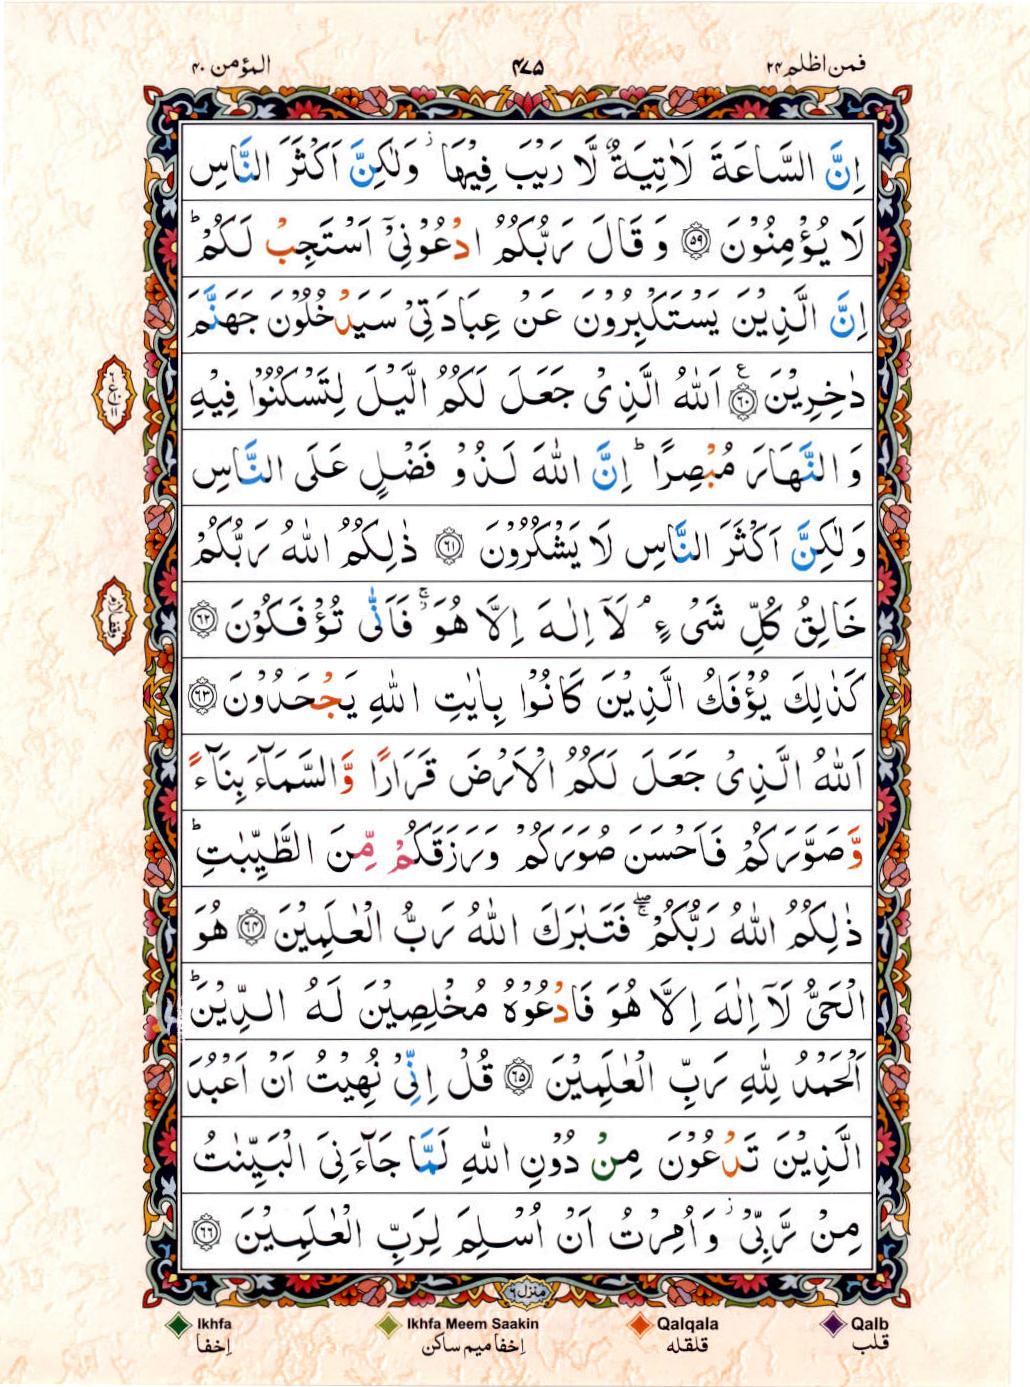 فمن اظلم ۲۴
۴۷۵
المؤمن ۴۰
اِنَّ السَّاعَةَ لَاٰتِيَةٌ لَّا رَيْبَ فِيْهَا ۫ وَلٰكِنَّ اَكْثَرَ النَّاسِ
لَا يُؤْمِنُوْنَ ﴿۵۹﴾ وَقَالَ رَبُّكُمُ ادْعُوْنِيْۤ اَسْتَجِبْ لَكُمْ ؕ
اِنَّ الَّذِيْنَ يَسْتَكْبِرُوْنَ عَنْ عِبَادَتِيْ سَيَدْخُلُوْنَ جَهَنَّمَ
دٰخِرِيْنَ ﴿۶۰﴾ ع اَللّٰهُ الَّذِىْ جَعَلَ لَكُمُ الَّيْلَ لِتَسْكُنُوْا فِيْهِ
وَالنَّهَارَ مُبْصِرًا ؕ اِنَّ اللّٰهَ لَذُوْ فَضْلٍ عَلَى النَّاسِ
وَلٰكِنَّ اَكْثَرَ النَّاسِ لَا يَشْكُرُوْنَ ﴿۶۱﴾ ذٰلِكُمُ اللّٰهُ رَبُّكُمْ
خَالِقُ كُلِّ شَىْءٍ ۘ لَاۤ اِلٰهَ اِلَّا هُوَ ۚ فَاَنّٰى تُؤْفَكُوْنَ ﴿۶۲﴾
كَذٰلِكَ يُؤْفَكُ الَّذِيْنَ كَانُوْا بِاٰيٰتِ اللّٰهِ يَجْحَدُوْنَ ﴿۶۳﴾
اَللّٰهُ الَّذِىْ جَعَلَ لَكُمُ الْاَرْضَ قَرَارًا وَّالسَّمَآءَ بِنَآءً
وَّصَوَّرَكُمْ فَاَحْسَنَ صُوَرَكُمْ وَرَزَقَكُمْ مِّنَ الطَّيِّبٰتِ ؕ
ذٰلِكُمُ اللّٰهُ رَبُّكُمْ ۖۚ فَتَبٰرَكَ اللّٰهُ رَبُّ الْعٰلَمِيْنَ ﴿۶۴﴾ هُوَ
الْحَىُّ لَاۤ اِلٰهَ اِلَّا هُوَ فَادْعُوْهُ مُخْلِصِيْنَ لَهُ الدِّيْنَ ؕ
اَلْحَمْدُ لِلّٰهِ رَبِّ الْعٰلَمِيْنَ ﴿۶۵﴾ قُلْ اِنِّىْ نُهِيْتُ اَنْ اَعْبُدَ
الَّذِيْنَ تَدْعُوْنَ مِنْ دُوْنِ اللّٰهِ لَمَّا جَآءَنِىَ الْبَيِّنٰتُ
مِنْ رَّبِّىْ ۫ وَاُمِرْتُ اَنْ اُسْلِمَ لِرَبِّ الْعٰلَمِيْنَ ﴿۶۶﴾
منزل ۶
Ikhfa
Ikhfa Meem Saakin
Qalqala
Qalb
اِخفا
اِخفا میم ساکن
قلقله
قلب